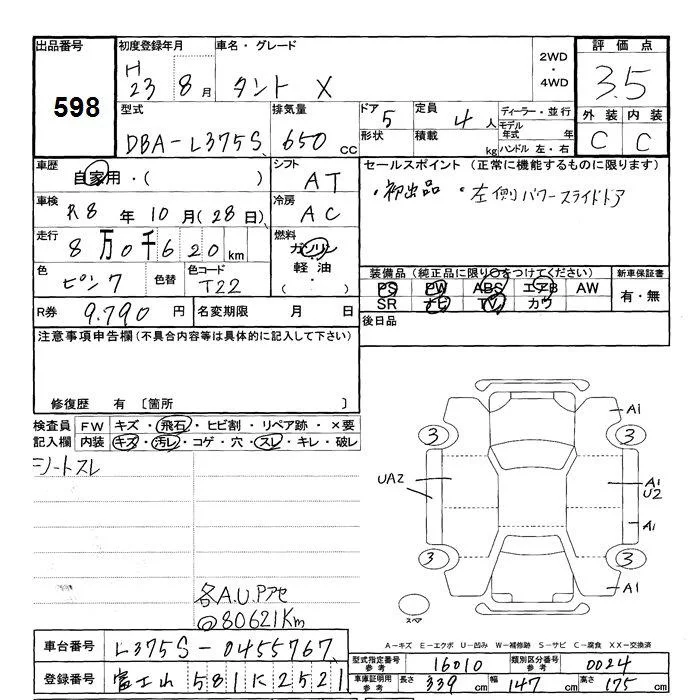 出品番号
598
初度登録年月
H 23 8月
車名・グレード
タント X
2WD
・
4WD
評価点
3.5
外装 内装
C C
型式
DBA-L375S
排気量
650 CC
ドア 5
形状
定員 4人
積載 kg
ディーラー・並行
モデル年式 年
ハンドル 左・右
車歴
自家用・( )
シフト
AT
セールスポイント (正常に機能するものに限ります)
・初出品 ・左側パワースライドドア
車検
R8年10月(28日)
冷房
AC
走行
8万0千620km
燃料
ガソリン
軽油
・
色
ピンク
色替
色コード
T22
装備品(純正品に限り○をつけてください)
PS PW ABS エアB AW
SR ナビ TV カワ
新車保証書
有・無
R券 9.790円
名変期限 月 日
後日品
注意事項申告欄(不具合内容等は具体的に記入して下さい)
修復歴 有 〔箇所 〕
検査員 FW キズ・飛石・ヒビ割・リペア跡・×要
記入欄 内装 キズ・汚レ・コゲ・穴・スレ・キレ・破レ
シートスレ
各A.U.Pアセ
@80621Km
A1
3 3
UA2
A1
U2
A1
3 3
A1
スペア
A-キズ E-エクボ U-凹み W-補修跡 S-サビ C-腐食 XX-交換済
車台番号 L375S-0455767
登録番号 富士山 581 K 2521
型式指定番号 参考 16010
類別区分番号 参考 0024
車庫証明用 参考 長さ 339cm 幅 147cm 高さ 175cm